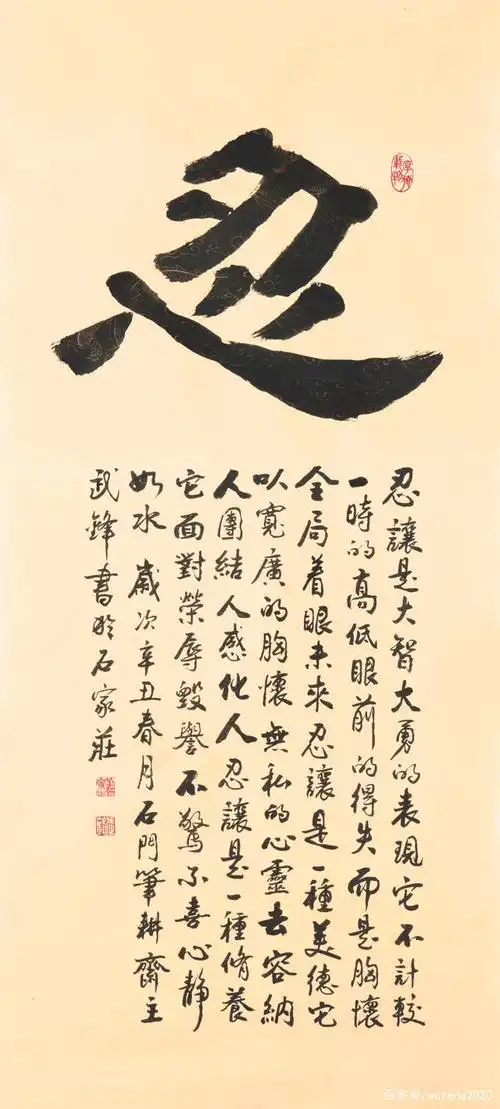 忍
忍讓是大智大勇的表現它不計較
一時的高低眼前的得失而是胸懷
全局着眼未來忍讓是一種美德它
以寬廣的胸懷無私的心靈去容納
人團結人感化人忍讓是一種修養
它面對榮辱毀譽不驚不喜心靜
如水 歲次辛丑春月石門筆耕齋主
武鋒書於石家莊
百家号/wufeng2020